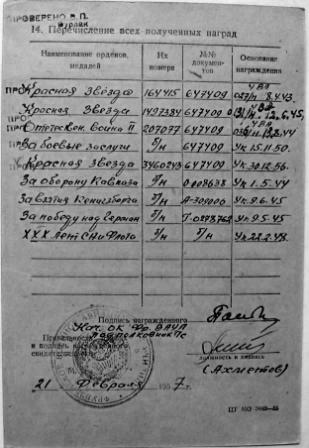 ПРОВЕРЕНО В.П.
14. Перечисление всех полученных наград
Наименование орденов, медалей
Их номера
№№ документов
Основание награждения
Красная Звезда 164415 647409 8.4.43.
Красная Звезда 1497384 647409 12.6.45,
Отечествен. война II 207077 647409
За боевые заслуги б/н 647409 Ук 15.11.50.
Красная Звезда 3460243 647409 Ук 30.12.56.
За оборону Кавказа б/н Ук 1.5.44
За взятия Кенигсберга б/н А-309006 Ук 9.6.45
За победу над Герман б/н Ук 9.5.45
XXX лет СА и Флота б/н б/н Ук 22.2.48.
Подпись награжденного
Нач. ОК
подполковник
должность и подпись
(Ахметов)
21 Февраля 1957 г.